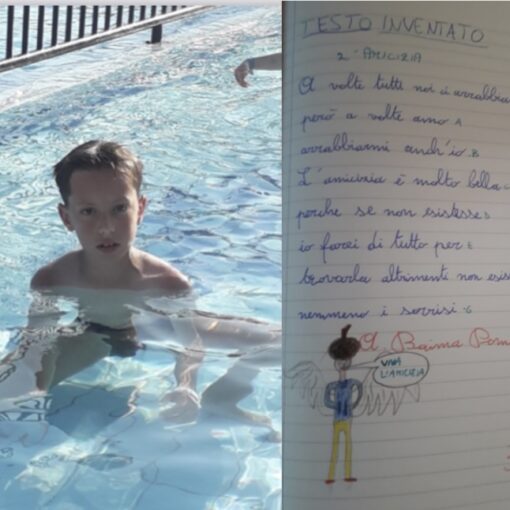 TESTO INVENTATO
2. AMICIZIA
A volte tutti noi ci arrabbia
però a volte amo A
arrabbiarmi anch'io. B
L'amicizia è molto bella
perche se non esistesse
io farei di tutto per E
trovarla altrimenti non esis
nemmeno i sorrisi. G
A. Baima Pom
VIVA
L'AMICIZIA